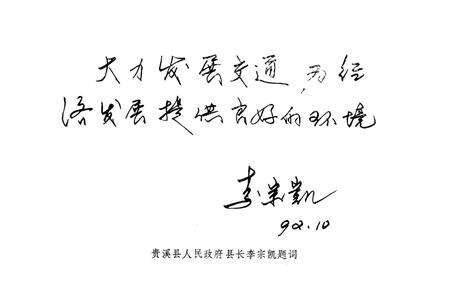 大力发展交通，为经
济发展提供良好的环境
李宗凯
92.10
贵溪县人民政府县长李宗凯题词